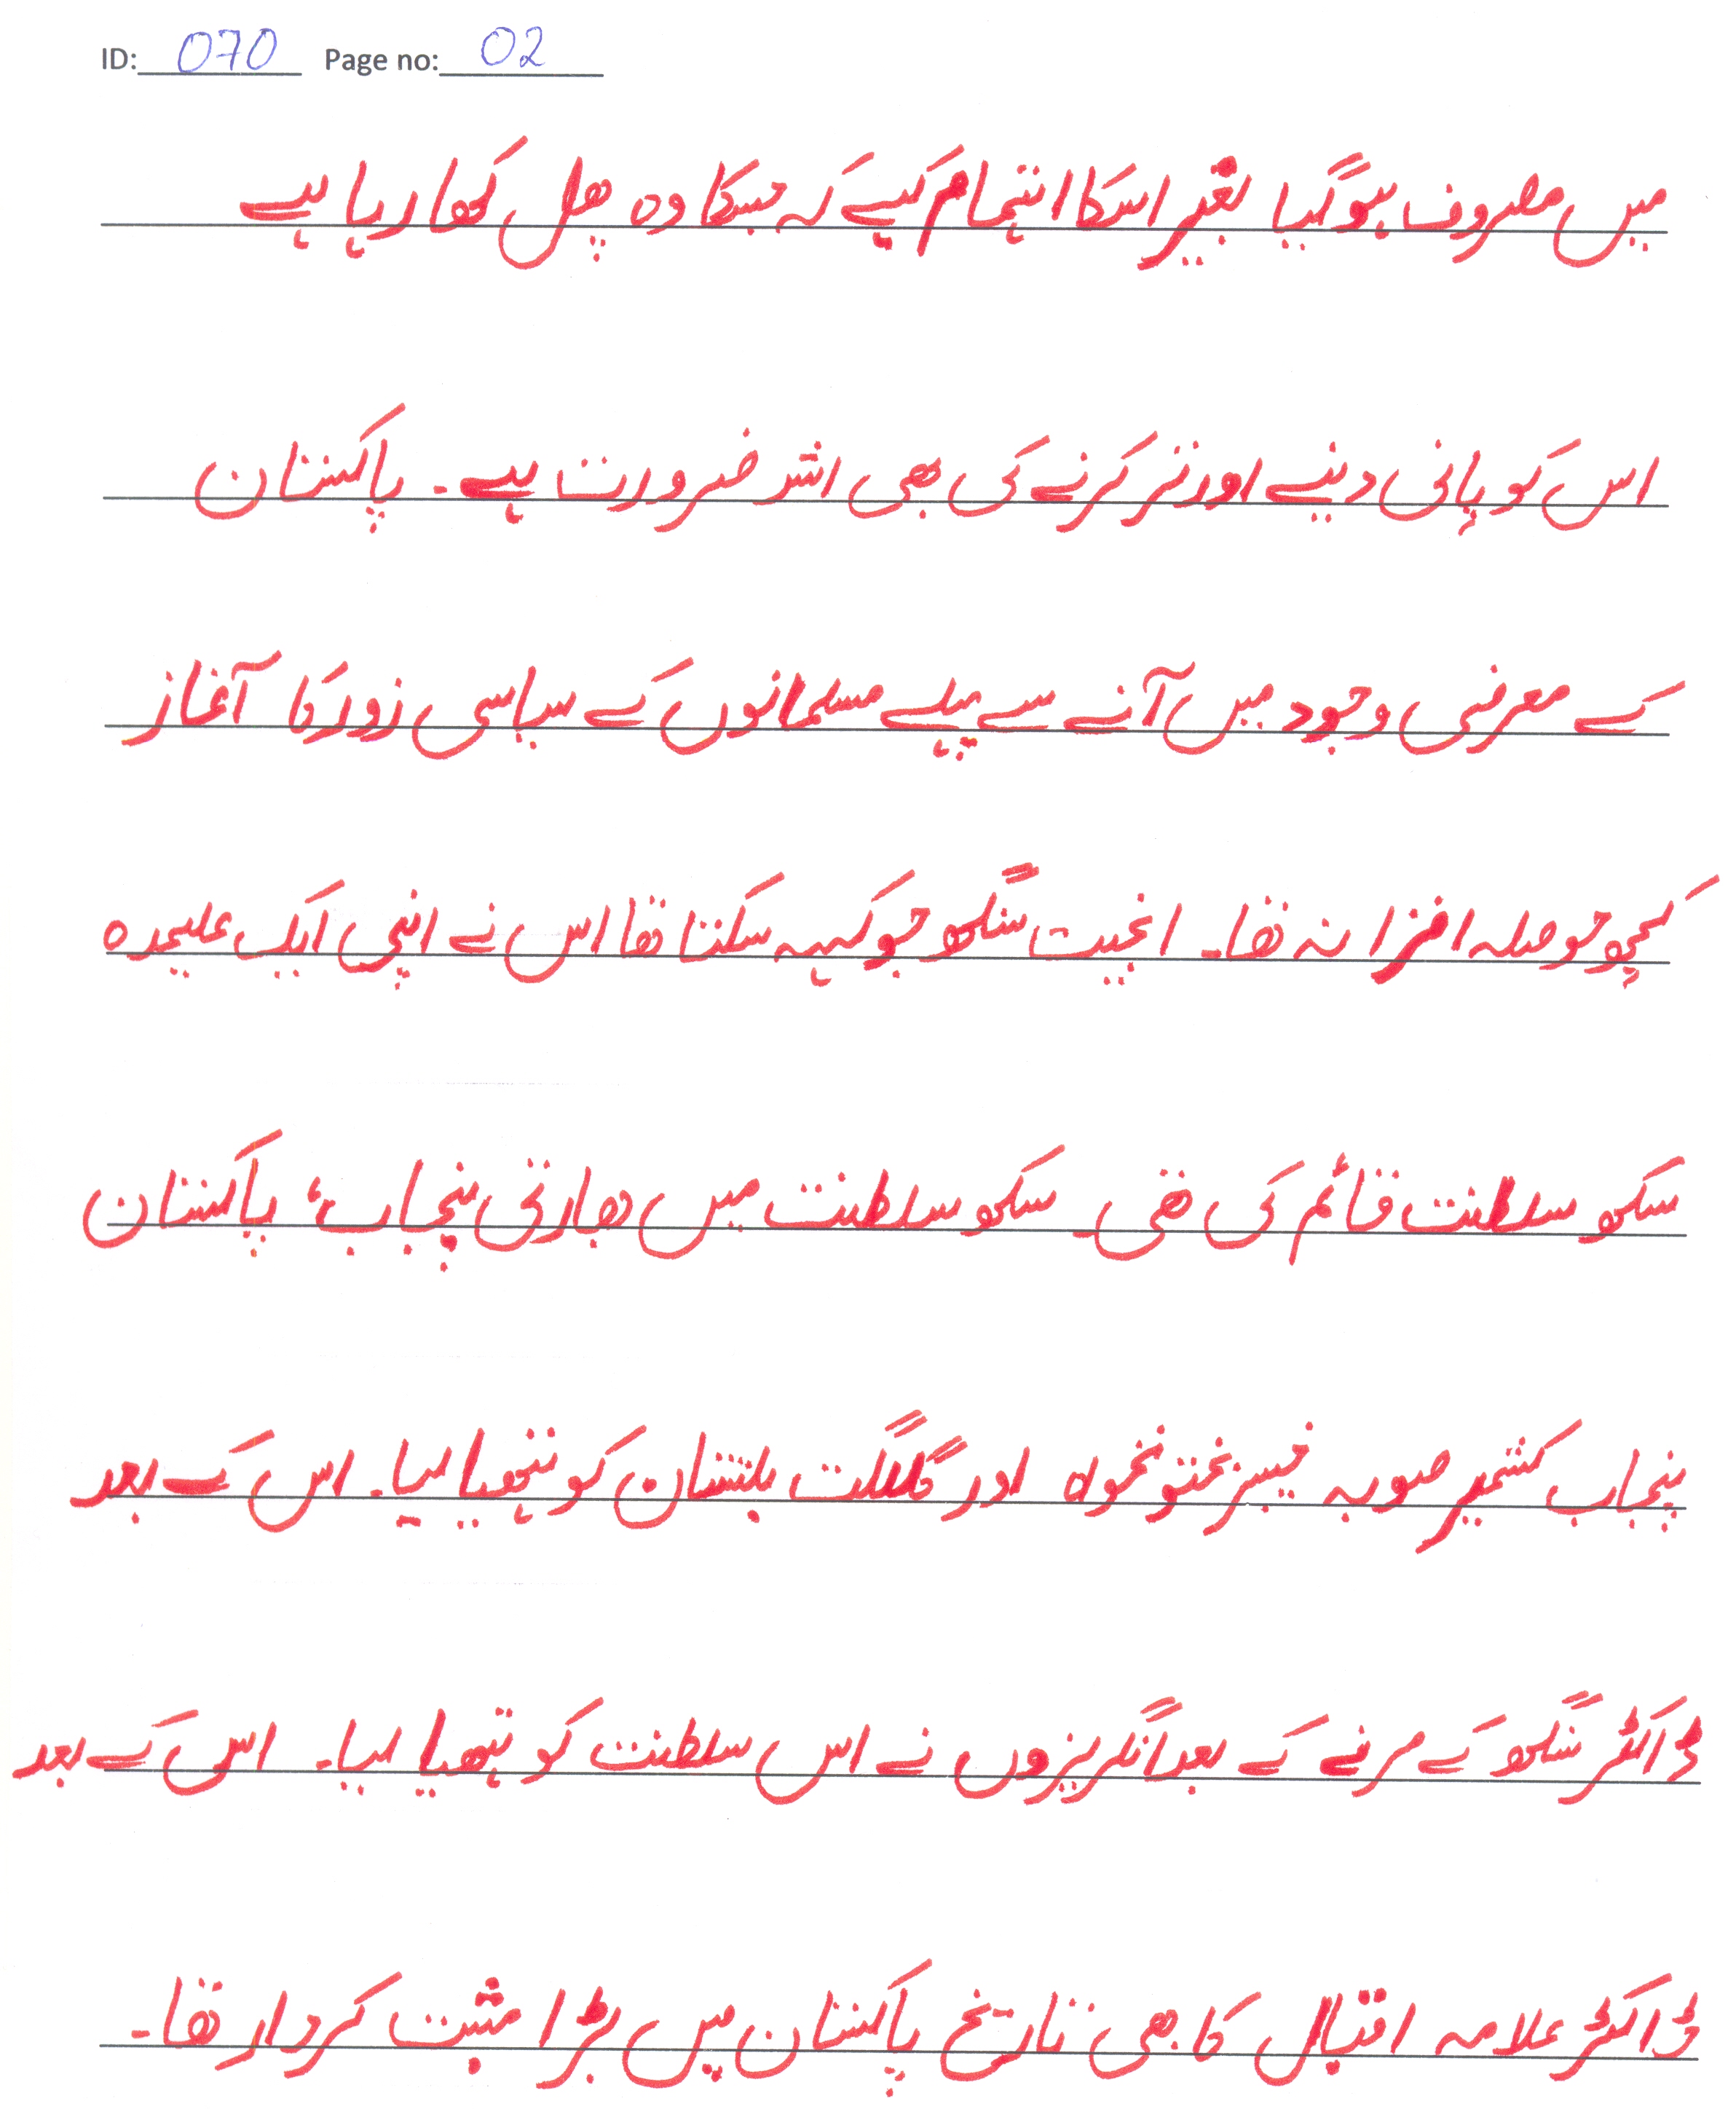 ID: 070 Page no: 02
میں مصروف ہوگیا بغیر اسکا اہتمام کیے کہ جسکا وہ پھل کھا رہا ہے
اس کو پانی دینے اور تر کرنے کی بھی اشد ضرورت ہے۔ پاکستان
کے معرضی وجود میں آنے سے پہلے مسلمانوں کے سیاسی زور کا آغاز
کچھ حوصلہ افزا نہ تھا۔ انجیت سنگھ جو کہہ سکتا تھا اس نے اپنی ایک علیحدہ
سکھ سلطنت قائم کی تھی۔ سکھ سلطنت میں بھارتی پنجاب، پاکستان
پنجاب کشمیر صوبہ خیبر پختونخواہ اور گلگت بلتستان کو ہتھیا لیا۔ اس کے بعد
ڈاکٹر سنگھ کے مرنے کے بعد انگریزوں نے اس سلطنت کو ہتھیا لیا۔ اس کے بعد
ڈاکٹر علامہ اقبال کا بھی تاریخ پاکستان میں بڑا مثبت کردار تھا۔